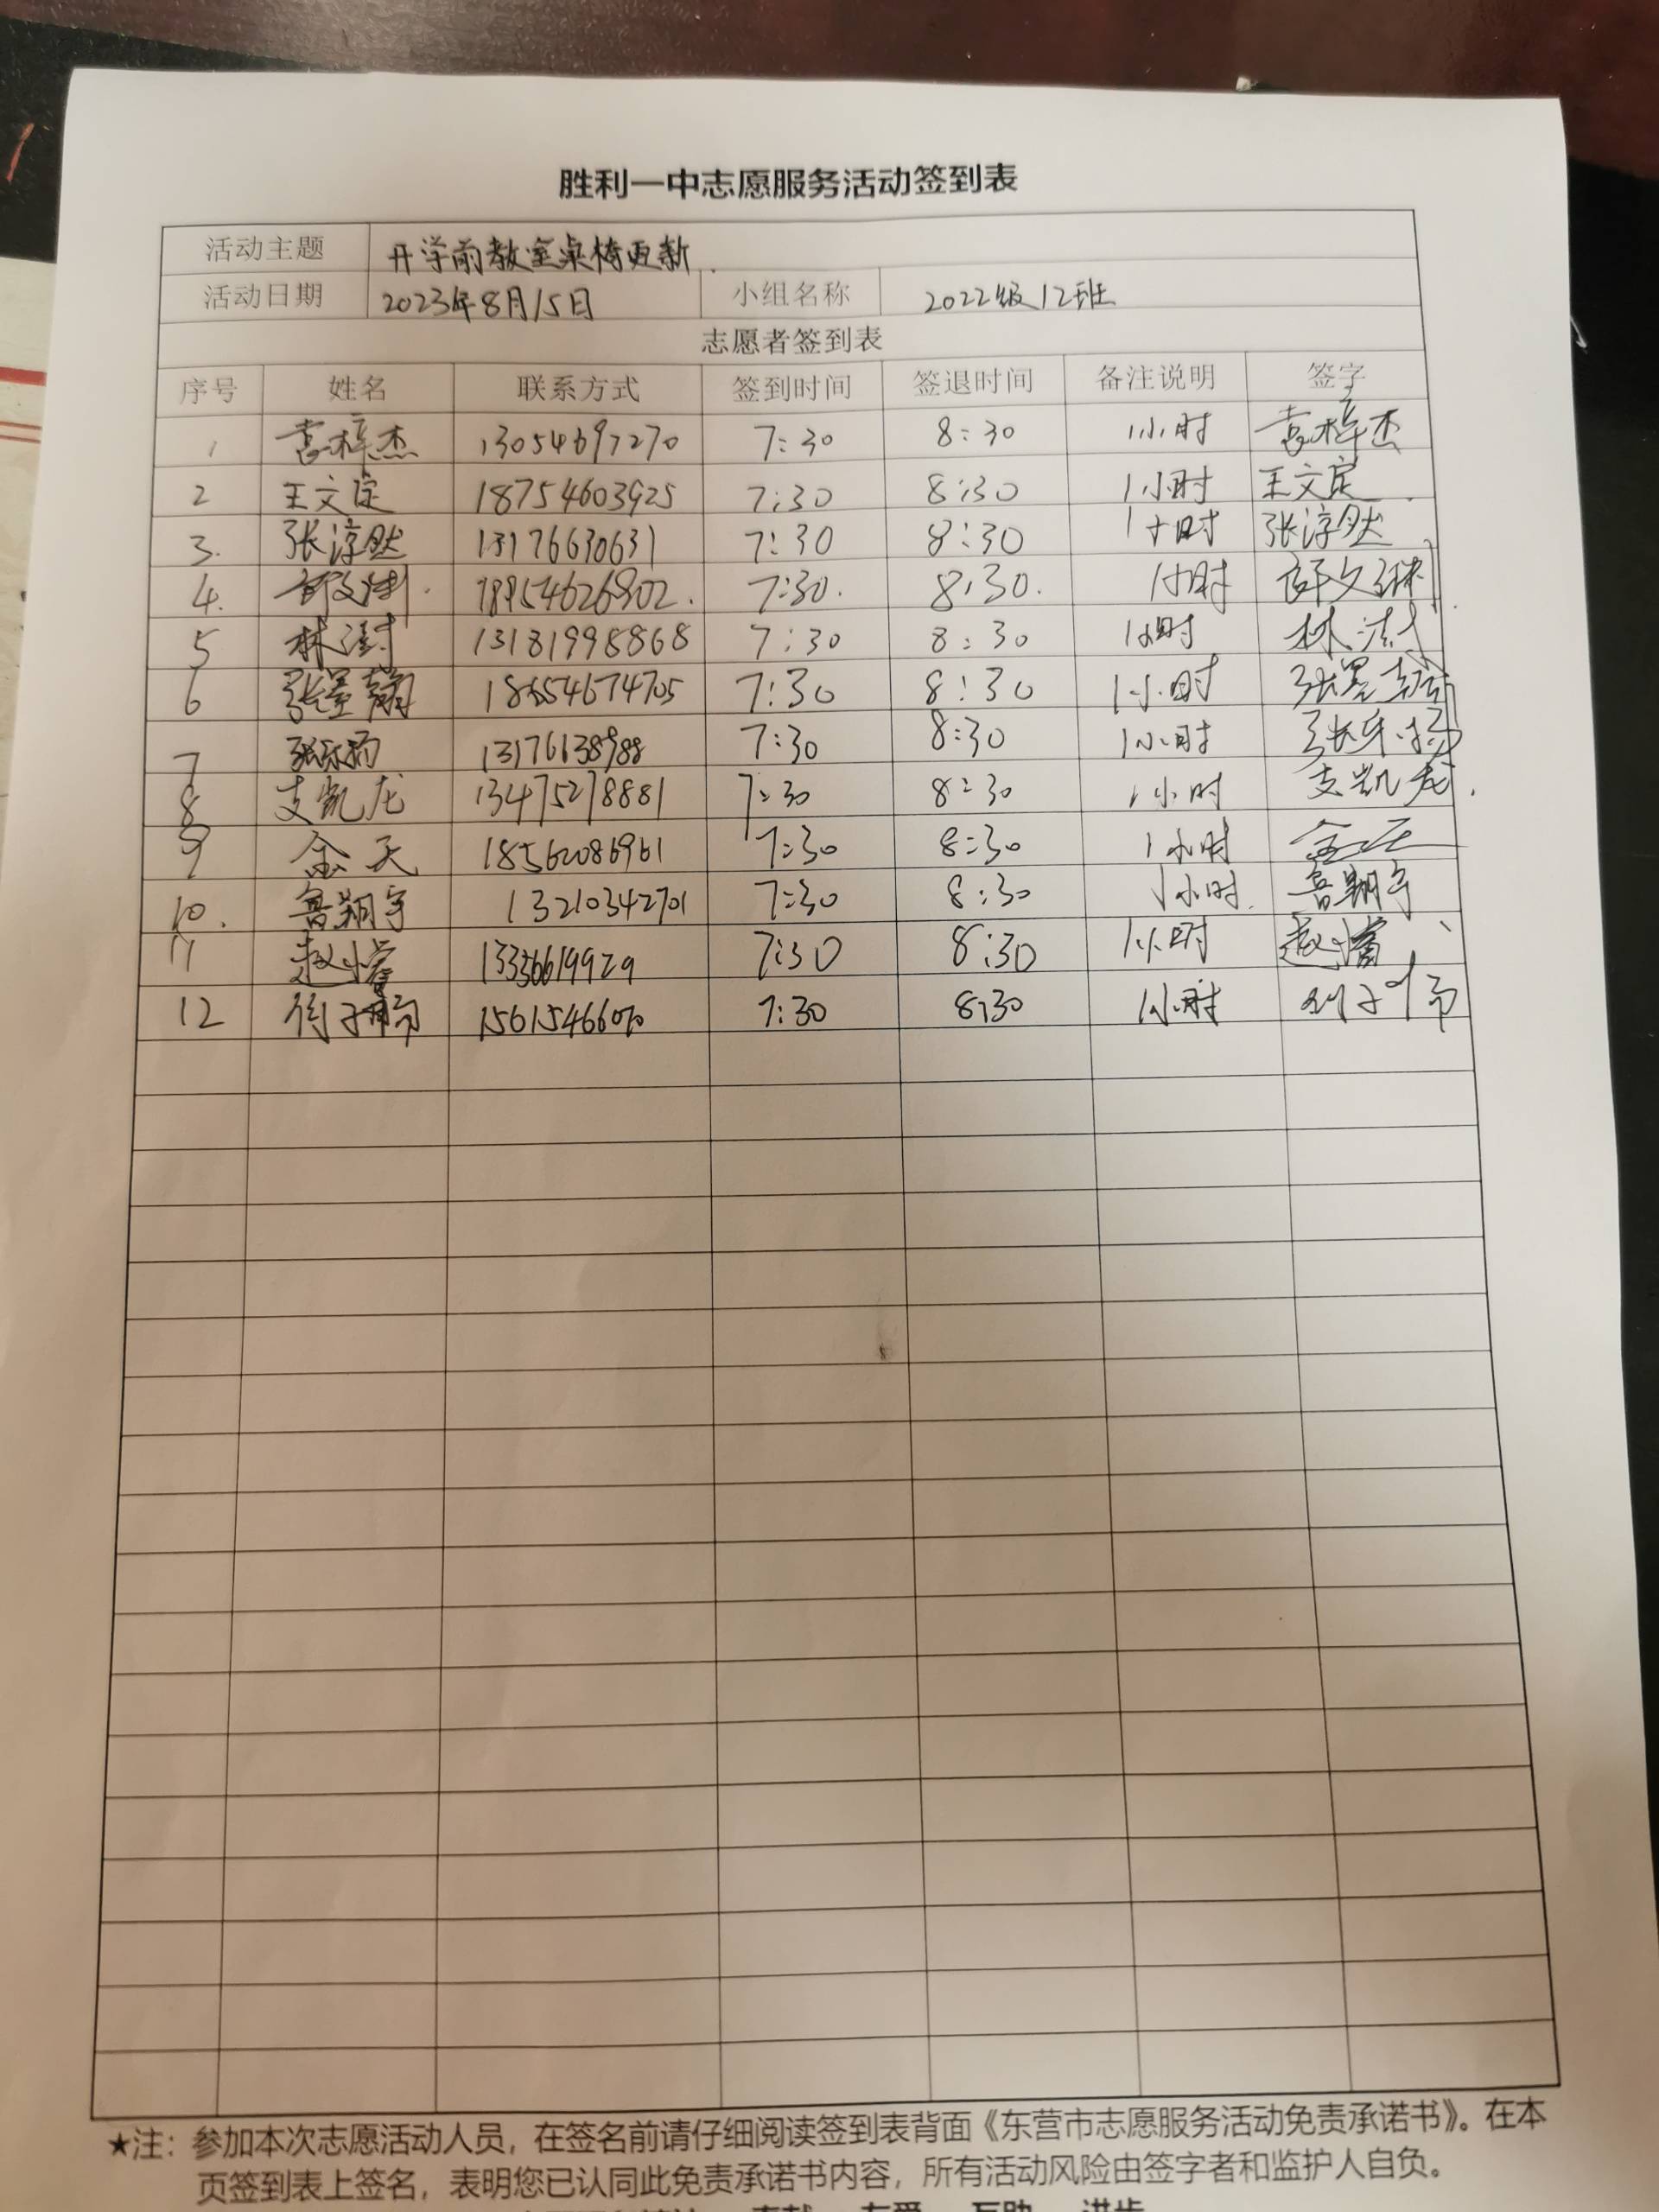 胜利一中志愿服务活动签到表
活动主题 开学前教室桌椅更新
活动日期 2023年8月15日 小组名称 2022级12班
志愿者签到表
序号 姓名 联系方式 签到时间 签退时间 备注说明 签字
1 袁梓杰 13054697270 7:30 8:30 1小时 袁梓杰
2 王文定 18754603925 7:30 8:30 1小时 王文定
3. 张淳然 13176630631 7:30 8:30 1小时 张淳然
4. 18954626902. 7:30. 8:30. 1小时
5 林澍 13181998868 7:30 8:30 1小时 林澍
6 18654674705 7:30 8:30 1小时
7 13176138988 7:30 8:30 1小时
8 支凯龙 13475278881 7:30 8:30 1小时 支凯龙
9 金天 18562086961 7:30 8:30 1小时 金天
10. 鲁翔宇 13210342701 7:30 8:30 1小时. 鲁翔宇
11 7:30 8:30 1小时
12 7:30 8:30 1小时
★注：参加本次志愿活动人员，在签名前请仔细阅读签到表背面《东营市志愿服务活动免责承诺书》。在本
页签到表上签名，表明您已认同此免责承诺书内容，所有活动风险由签字者和监护人自负。
奉献 友爱 互助 进步